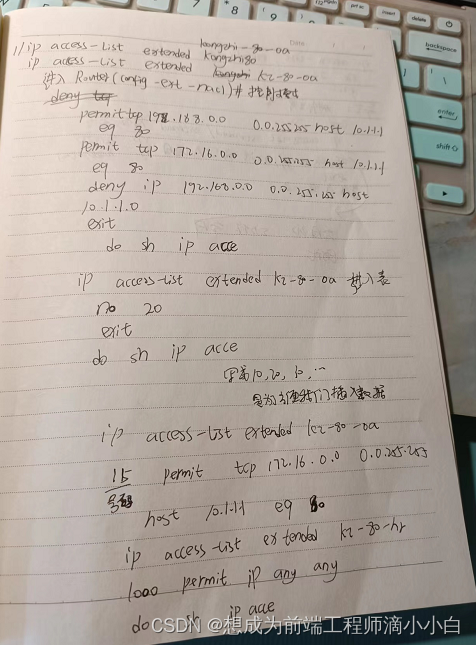 1/ ip access-List extended kongzhi-80-oa
ip access-List extended kongzhi80
进入 Router(config-ext-nacl)# 控制模式
deny tcp
permit tcp 192.168.0.0 0.0.255.255 host 10.1.1.1
eq 80
permit tcp 172.16.0.0 0.0.255.255 host 10.1.1.1
eq 80
deny ip 192.168.0.0 0.0.255.255 host
10.1.1.0
exit
do sh ip acce
ip access-list extended kz-80-oa 进入表
no 20
exit
do sh ip acce
10, 20, 30, ...
我们插入数据
ip access-list extended kz-80-oa
15 permit tcp 172.16.0.0 0.0.255.255
host 10.1.1.1 eq 80
ip access-list extended kz-80-hr
1000 permit ip any any
do sh ip acce
CSDN @想成为前端工程师滴小小白